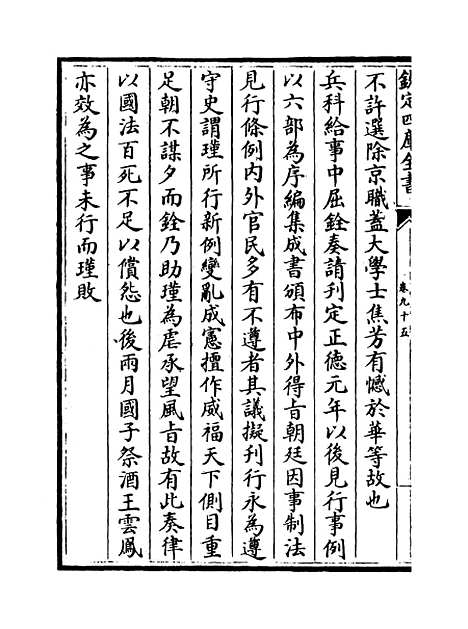 欽定四庫全書
卷九十五
不許選除京職蓋大學士焦芳有憾於華等故也
兵科給事中屈銓奏請刊定正德元年以後見行事例
以六部為序編集成書頒布中外得㫖朝廷因事制法
見行條例内外官民多有不遵者其議擬刊行永為遵
守史謂瑾所行新例變亂成憲擅作威福天下側目重
足朝不謀夕而銓乃助瑾為虐承望風㫖故有此奏律
以國法百死不足以償怨也後兩月國子祭酒王雲鳳
亦效為之事未行而瑾敗